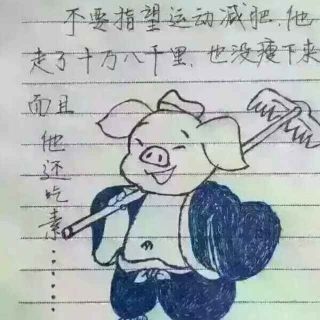 不要指望运动减肥.他
走了十万八千里.也没瘦下来
而且他还吃素······